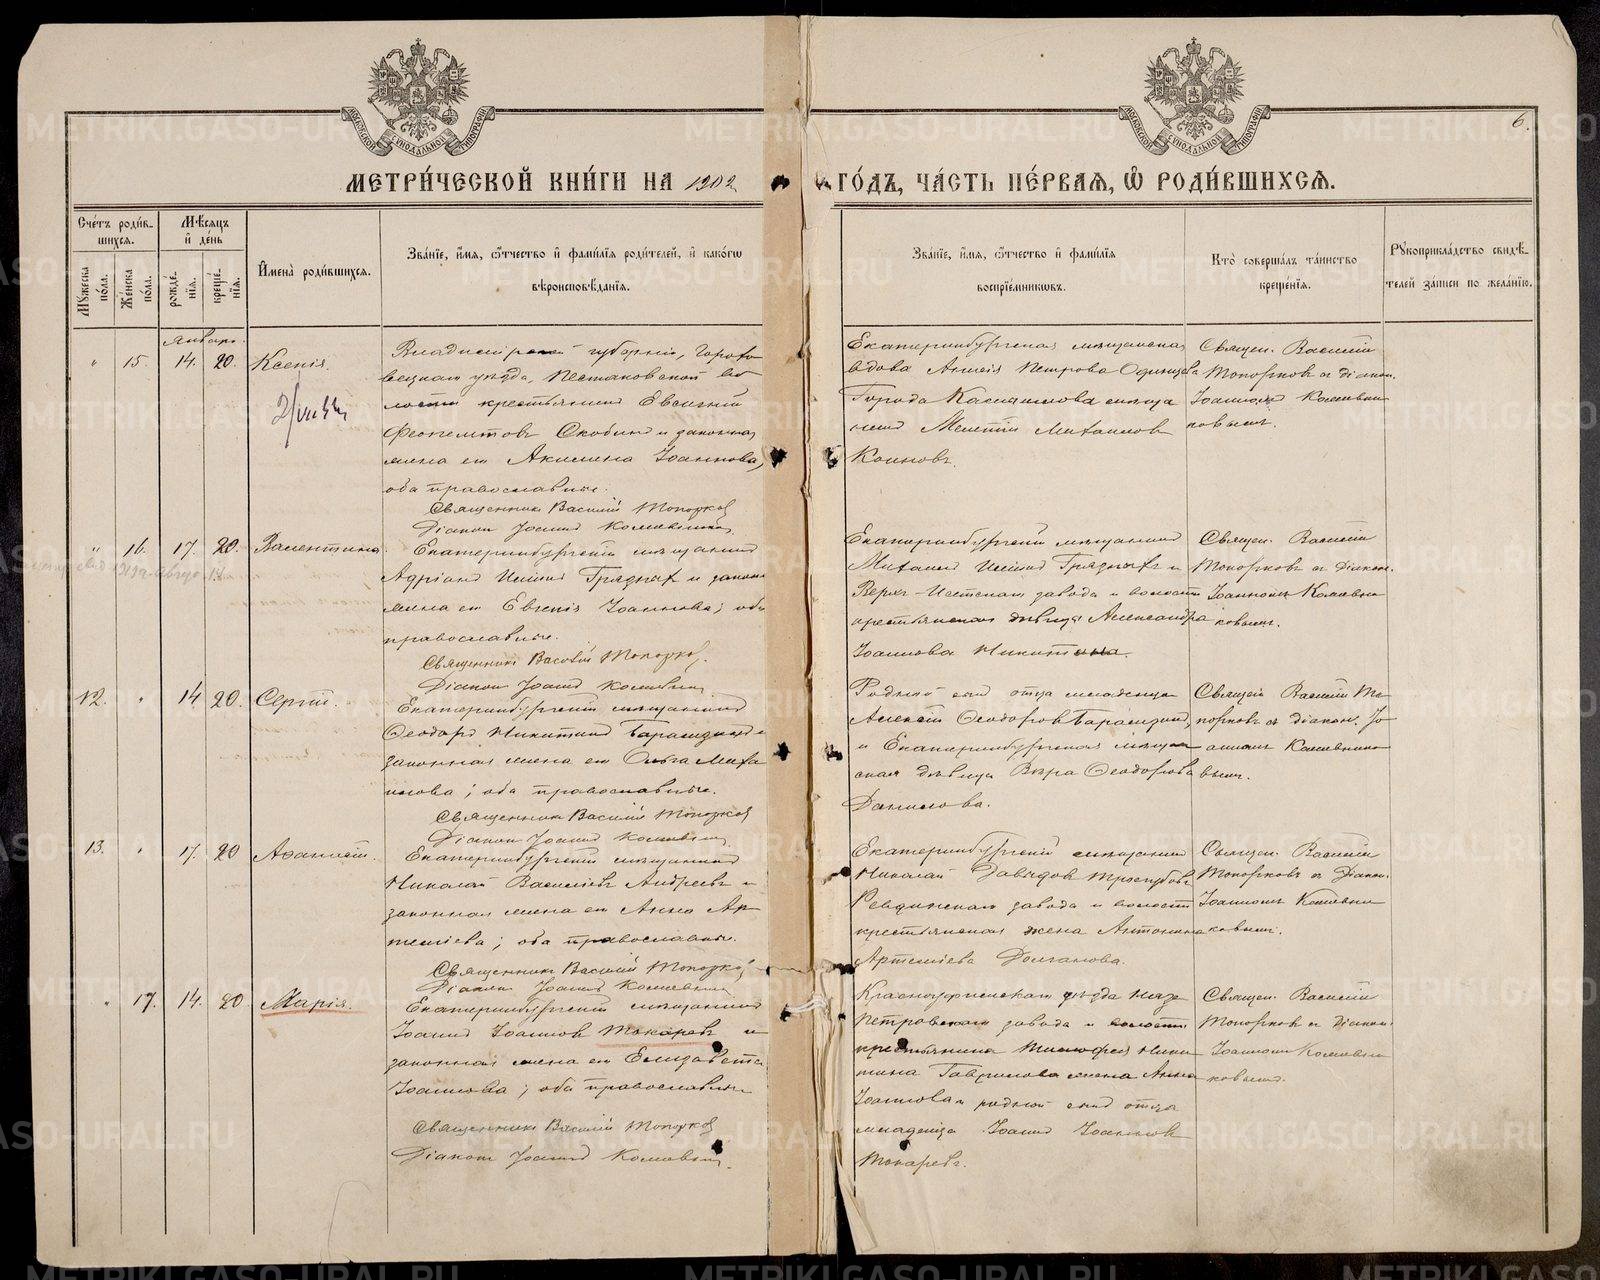 МОСКОВСКОЙ СѴНОДАЛЬНОЙ ТИПОГРАФІИ
МОСКОВСКОЙ СѴНОДАЛЬНОЙ ТИПОГРАФІИ
6.
МЕТРИ́ЧЕСКОЙ КНИ́ГИ НА 1902
ГО́ДЪ, ЧА́СТЬ ПЕ́РВАѦ, Ѡ РОДИ́ВШИХСѦ.
Сче́тъ роди́вшихсѧ.
Мꙋ́жеска по́ла.
Же́нска по́ла.
Мѣ́сѧцъ и҆ де́нь
рожде́нїѧ.
креще́нїѧ.
И҆мена̀ роди́вшихсѧ.
Зва́нїе, и҆́мѧ, ѻ҆́тчество и҆ фами́лїѧ роди́телей, и҆ како́гѡ
вѣроисповѣ́данїѧ.
Зва́нїе, и҆́мѧ, ѻ҆́тчество и҆ фами́лїѧ
воспрїе́мникѡвъ.
Кто̀ соверша́лъ та́инство
креще́нїѧ.
Рꙋкоприкла́дство свидѣ́
телей за́писи по жела́нїю.
Январь.
" 15. 14. 20. Ксенія.
Владимірской губерніи, Горохо
вецкаго уѣзда, Пестяковской во
лости крестьянинъ Евсигній
Феопемптовъ Скобинъ и законная
жена его Акилина Іоаннова,
оба православные.
Священникъ Василій Топорковъ
Діаконъ Іоаннъ
Екатеринбургская мѣщанская
вдова Петрова Одинцова
Города Касимова мѣща
нинъ Мелетій Михаиловъ
Коиновъ.
Священ. Василій
Топорковъ съ діакон.
Іоанномъ
ковымъ.
" 16. 17. 20. Валентина.
Екатеринбургскій мѣщанинъ
Адріанъ Ильинъ Грядкинъ и закон
жена его Евгенія Іоаннова; оба
православные.
Священникъ Василій Топорковъ.
Діаконъ Іоаннъ
Екатеринбургскій мѣщанинъ
Михаилъ Ильинъ и
Верхъ-Исетскаго завода и волости
крестьянская дѣвица Александра
Іоаннова Никитина.
Священ. Василій
Топорковъ съ Діакон.
Іоанномъ
ковымъ.
12. " 14 20. Сергій.
Екатеринбургскій мѣщанинъ
Ѳеодоръ Никитинъ и
законная жена его Ольга Миха
илова; оба православные.
Священникъ Василій Топорковъ
Діаконъ Іоаннъ
Родной сынъ отца младенца
Алексій Ѳеодоровъ
и Екатеринбургская мѣщан
ская дѣвица Вѣра Ѳеодорова
Данилова.
Священ Василій То
порковъ съ діакон. Іо
анномъ
вымъ.
13. " 17. 20 Аѳанасій.
Екатеринбургскій мѣщанинъ
Николай Василіевъ Андреевъ и
законная жена его Анна Ар
теміева; оба православные.
Священникъ Василій Топорковъ
Діаконъ Іоаннъ
Екатеринбургскій мѣщанинъ
Николай Давидовъ
Ревдинскаго завода и волости
крестьянская жена Антонина
Артеміева Долганова.
Священ. Василій
Топорковъ съ Діакон.
Іоанномъ
ковымъ.
" 17. 14. 20. Марія.
Екатеринбургскій мѣщанинъ
Іоаннъ Іоанновъ Токаревъ и
законная жена его Елизавета
Іоаннова; оба православные
Священникъ Василій Топорковъ
Діаконъ Іоаннъ
Красноуфимскаго уѣзда Нязе
Петровскаго завода и волости
крестьянина Тимофея Ники
тина Гаврилова жена Анна
Іоаннова и родной сынъ отца
младенца Іоаннъ Іоанновъ
Токаревъ.
Священ. Василій
Топорковъ съ діакон
Іоанномъ
ковымъ.
METRIKI.GASO-URAL.RU